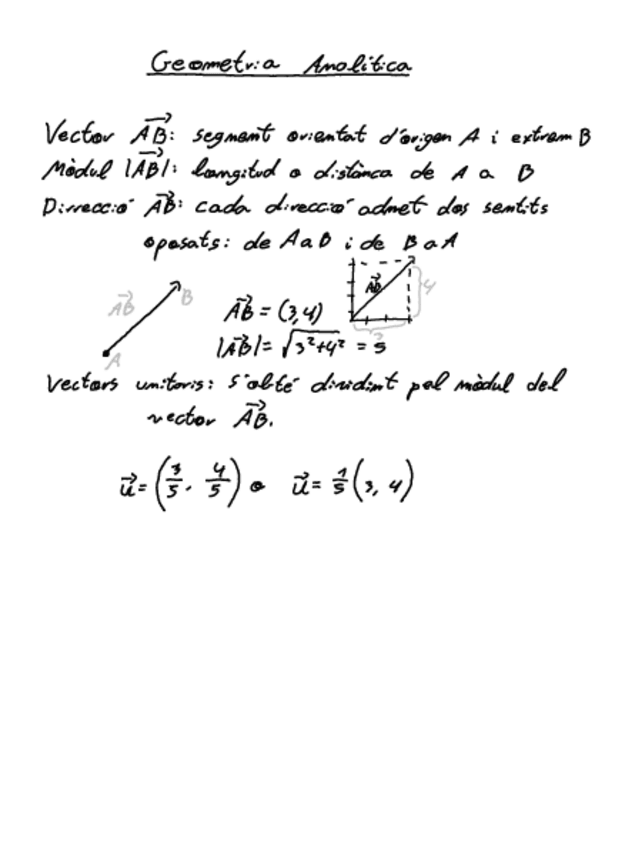 Geometria Analítica
Vector AB: segment orientat d'origen A i extrem B
Mòdul |AB|: longitud o distànca de A a B
Dirrecció AB: cada direcció admet dos sentits
oposats: de A a B i de B a A
AB
B
A
AB = (3,4)
|AB| = √3²+4² = 5
AB
4
3
Vectors unitaris: s'obté dividint pel mòdul del
vector AB.
u = (3/5, 4/5) o u = 1/5 (3, 4)